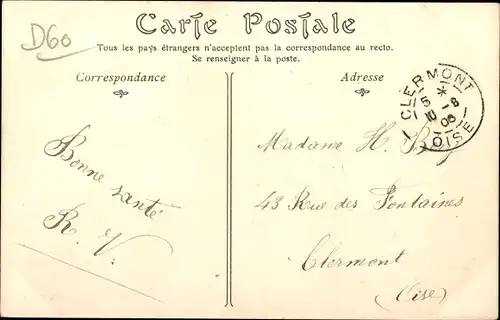 D60
Carte Postale
Tous les pays étrangers n'acceptent pas la correspondance au recto.
Se renseigner à la poste.
Correspondance
Adresse
CLERMONT
5 *
10 - 8
06
OISE
Bonne santé
R. V.
Madame H.
43 Rue des Fontaines
Clermont
(Oise)